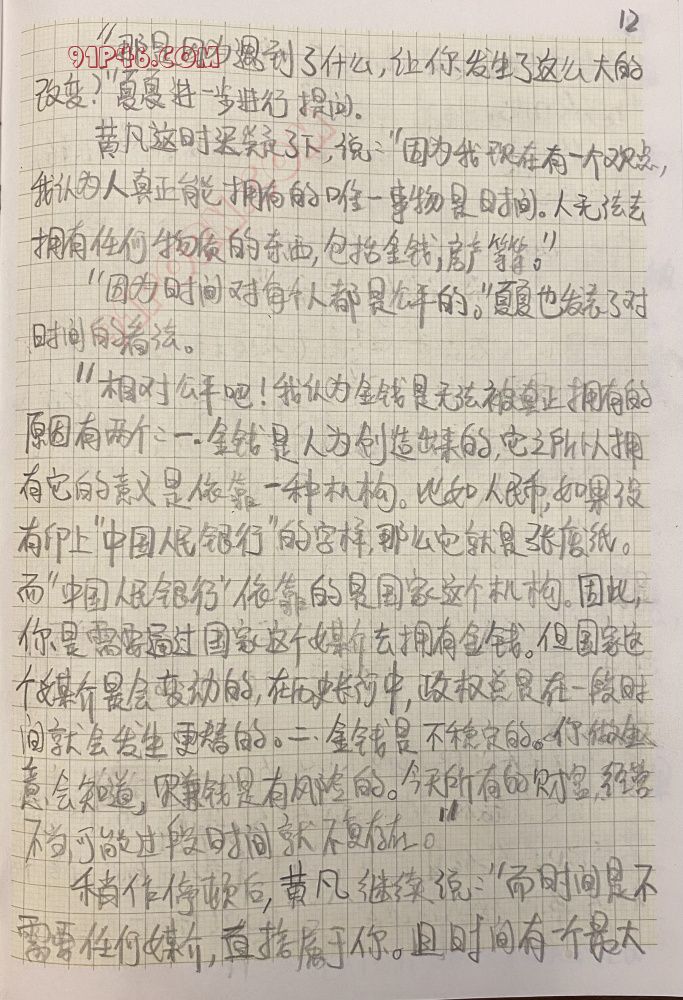 12
91P46.COM
"那是因为遇到了什么,让你发生了这么大的
改变?"夏夏进一步进行提问。
黄凡这时迟疑了下,说:"因为我现在有一个观点,
我认为人真正能拥有的唯一事物是时间。人无法去
拥有任何物质的东西,包括金钱,房产等等。"
"因为时间对每个人都是公平的。"夏夏也发表了对
时间的看法。
"相对公平吧!我认为金钱是无法被真正拥有的
原因有两个:一.金钱是人为创造出来的,它之所以拥
有它的意义是依靠一种机构。比如人民币,如果没
有印上"中国人民银行"的字样,那么它就是张废纸。
而"中国人民银行"依靠的是国家这个机构。因此,
你是需要通过国家这个媒介去拥有金钱。但国家这
个媒介是会变动的,在历史长河中,政权总是在一段时
间就会发生更替的。二.金钱是不稳定的。你做生
意会知道,赚钱是有风险的。今天所有的财富,经营
不当,可能过段时间就不复存在。"
稍作停顿后,黄凡继续说:"而时间是不
需要任何媒介,直接属于你。且时间有一个最大